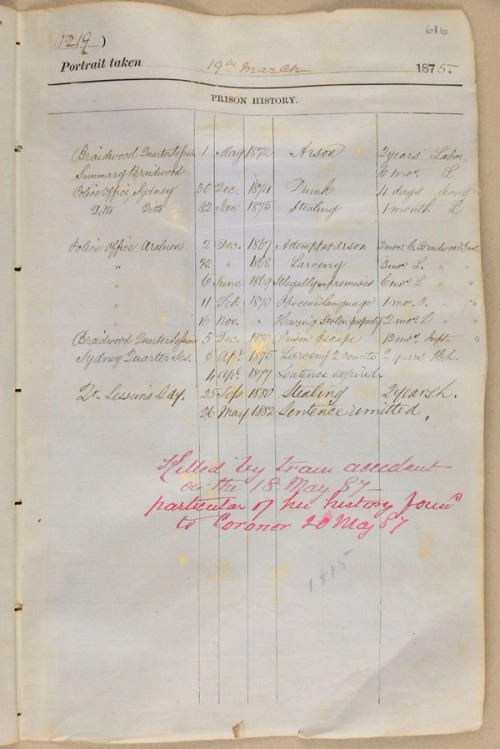 616
1219)
Portrait taken 19th March 1875.
PRISON HISTORY.
Braidwood Quarter Sessions 1 May 1872 Arson 2 years Labor
Summary Braidwood 6 mos L
Police Office Sydney 30 Dec. 1874 Drunk 4 days
Ditto Ditto 12 Jan 1875 Stealing 1 month L
Police Office Araluen 2 Dec. 1867 Attempt at Arson 2 mos C. Braidwood Gaol
" 22 " 1868 Larceny 3 mos L. " "
" 6 June 1869 Illegally on premises 6 mos L " "
" 11 Feb 1870 Obscene Language 1 mo. " "
" 16 Nov. " Having Stolen property 2 mos L " "
Braidwood Quarter Sessions 5 Dec. Prison Escape
Sydney Quarter Ses. 6 Apl. 1875 Larceny 2 counts 2 years H.L.
4 Apl. 1877 Sentence expired.
Qr Sessions Syd. 25 Sep 1880 Stealing 2 years h.
26 May 1882 Sentence remitted.
Killed by tram accedent
on the 18 May 87
particular of his history
to Coroner 20 May 87
1815